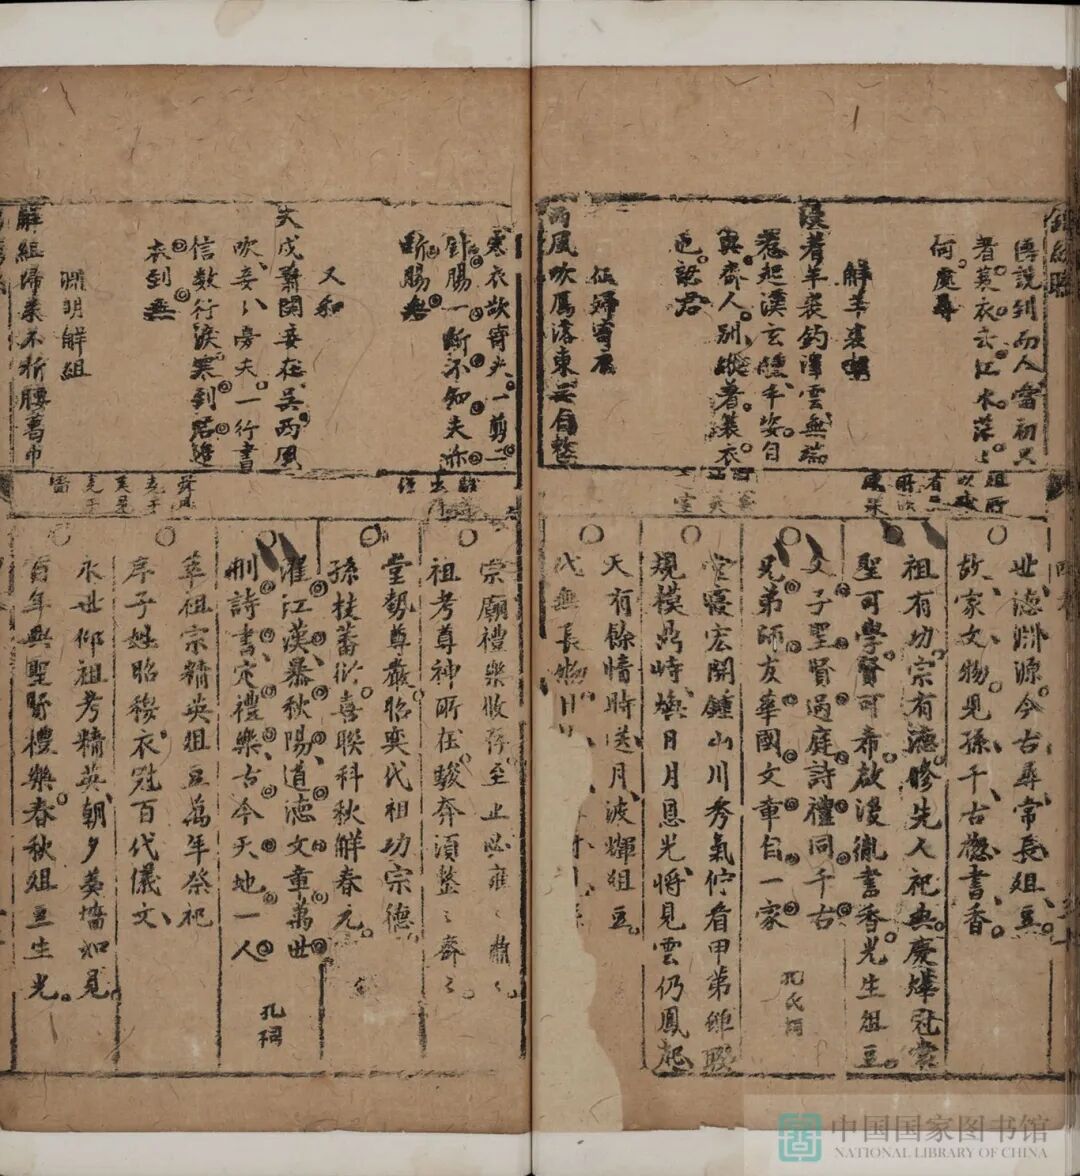 語說到而人當初只
着蓑衣去江水茫丶
何處尋
解羊裘
漫着羊裘釣澤雲無端
惹起漢玄纁年姿自
與齊人別縱着蓑衣
也認君
征婦寄衣
西風吹鴈落東無自整
寒衣欲寄夫一剪一
針腸一斷不知夫亦
斷腸無
又和
夫戍蕭関妾在吳西風
吹妾丶旁夫一行書
信数行淚寒到君邊
衣到無
淵明解組
解組歸来不折腰葛巾
世德淵源今古尋常長俎豆
故家文物見孫千古穂書香
祖有功宗有德修先人祀典慶煒冠裳
聖可學賢可希啟後胤書香光生俎豆
父子聖賢過庭詩禮同千古
兄弟師友華國文章自一家
孔氏祠
堂寢宏開鍾山川秀氣佇看甲第蟬聯
規模鼎峙煥日月恩光將見雲仍鳳起
天有餘情時送月波輝俎豆
代無長物日
宗廟禮樂攸存至止肅雍丶
祖考尊神所在駿奔湏整丶齊丶
堂勢尊嚴昭奕代祖功宗德
孫枝蕃衍喜聯科秋解春元
濯江漢暴秋陽道德文章萬世
刪詩書定禮樂古今天地一人
孔祠
萃祖宗精英俎豆萬年祭祀
序子姓昭穆衣冠百代儀文
永世仰祖考精英朝夕羹墻如見
百年興聖賢禮樂春秋俎豆生光
中国国家图书馆
NATIONAL LIBRARY OF CHINA